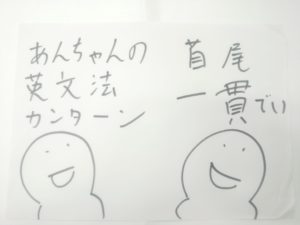 あんちゃんの
英文法
カンターン
首尾
一貫でい